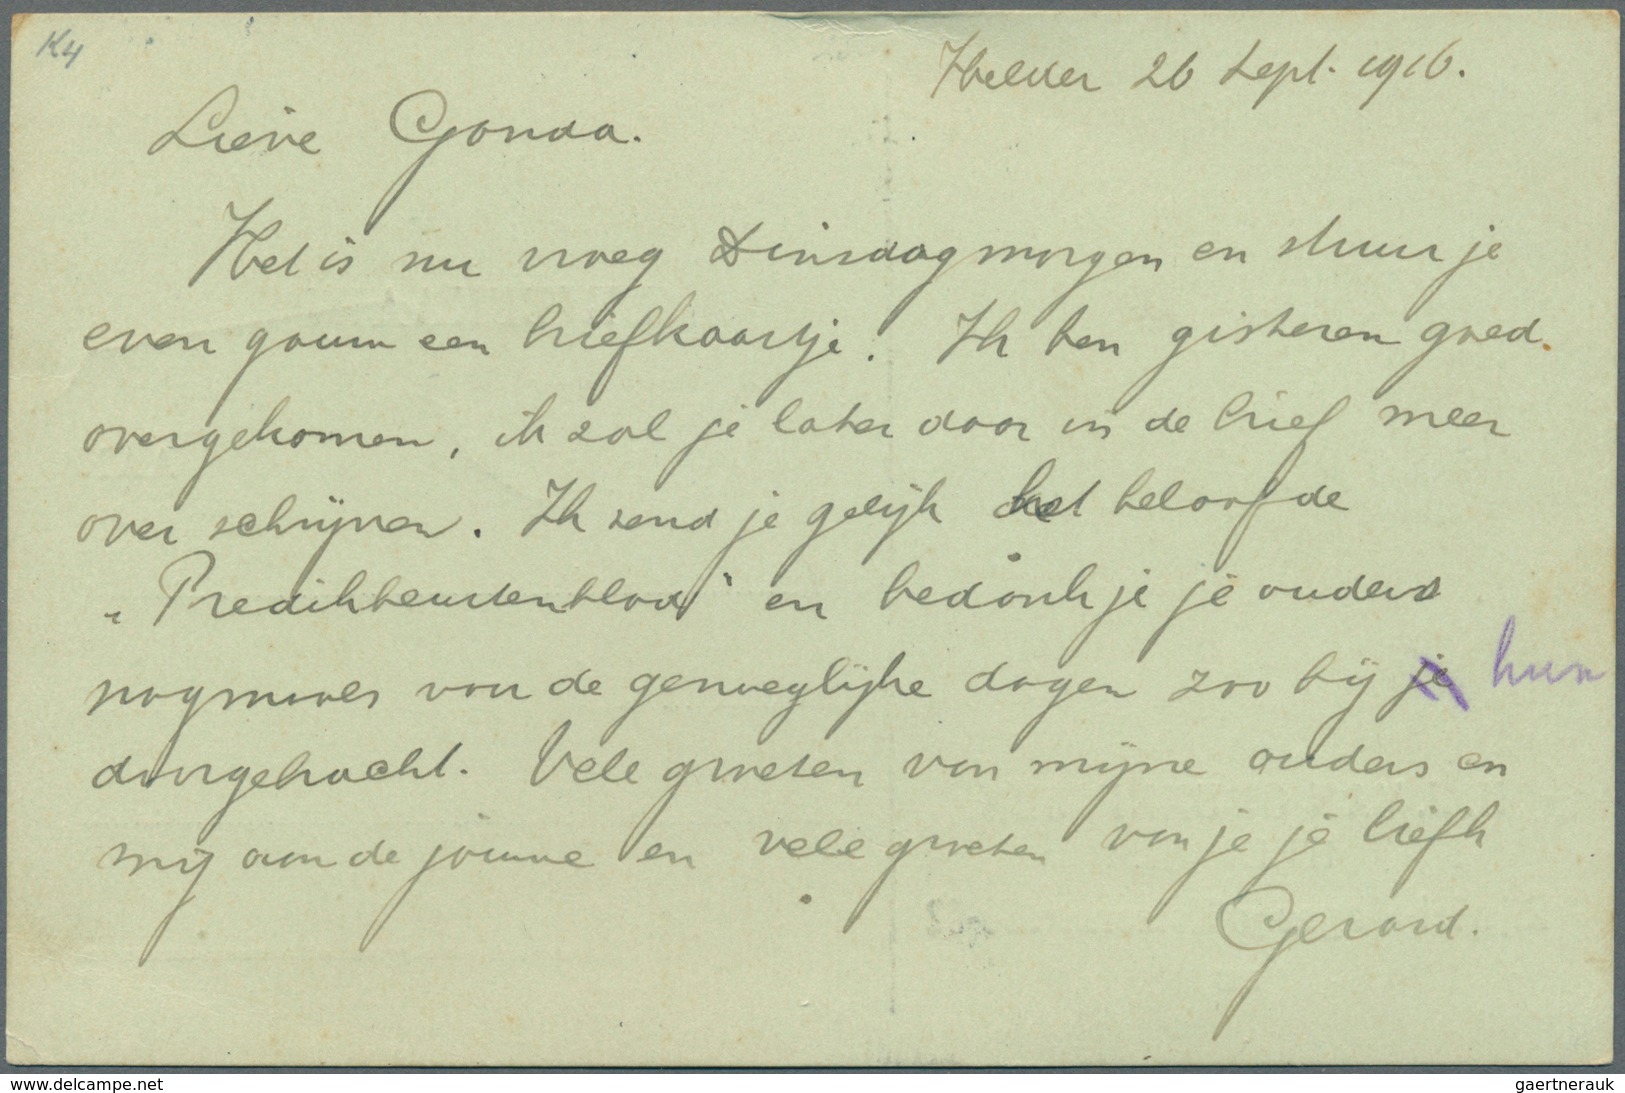 K4
Helder 26 Sept. 1916.
Lieve Gonda.
Het is nu vroeg Dinsdagmorgen en stuur je
even gauw een briefkaartje. Ik ben gisteren goed
overgekomen, ik zal je later door in de brief meer
over schrijven. Ik zend je gelijk het beloofde
„Predikbeurtenblad" en bedank je je ouders
nogmaals van de genoegelijke dagen zoo bij je hun
doorgebracht. Vele groeten van mijne ouders en
mij aan de jouwe en vele groeten van je je liefh
Gerard.
www.delcampe.net
gaertnerauk